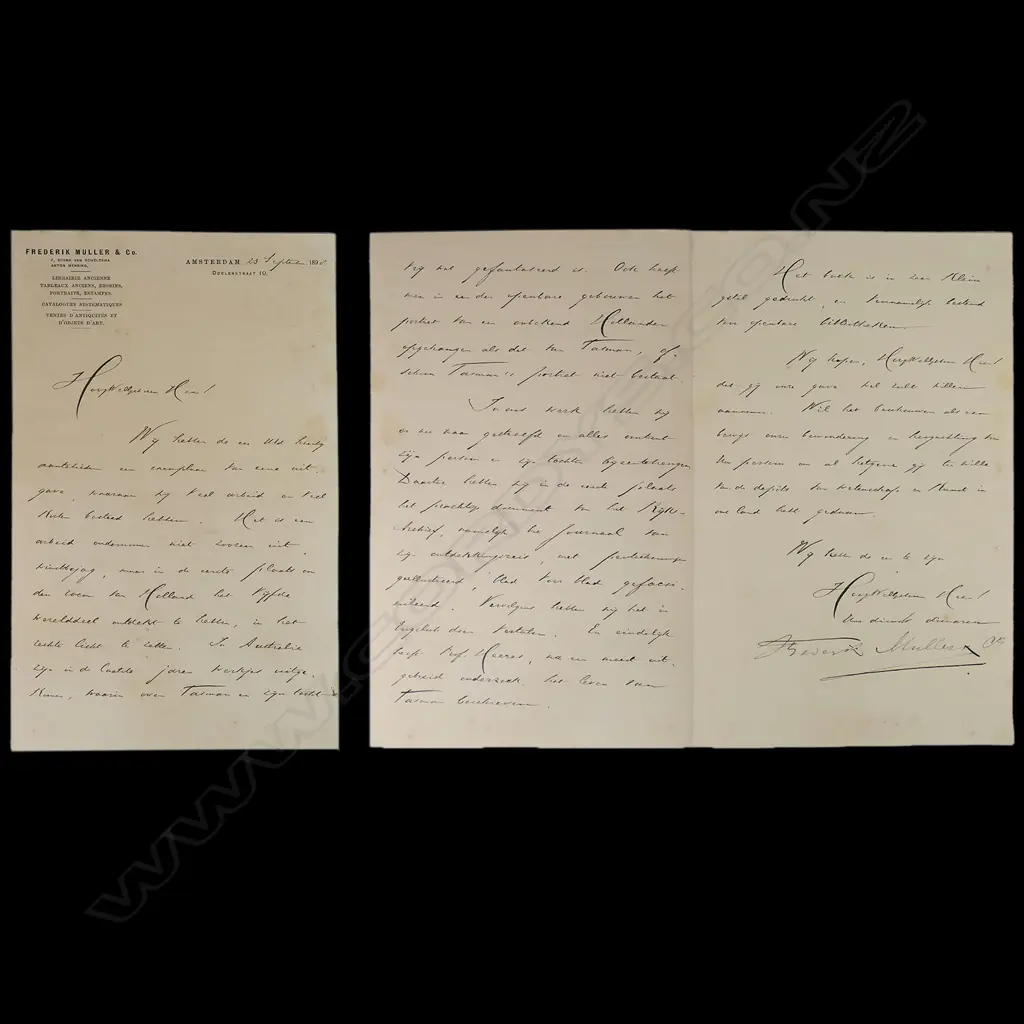 FREDERIK MULLER & Co.
F. ADAMA VAN SCHELTEMA
ANTON MENSING.
LIBRAIRIE ANCIENNE
TABLEAUX ANCIENS, DESSINS,
PORTRAITS, ESTAMPES.
CATALOGUES SYSTEMATIQUES
VENTES D'ANTIQUITÉS ET
D'OBJETS D'ART.
AMSTERDAM 23 September 189
DOELENSTRAAT 10.
HoogWelgeboren Heer!
Wij hebben de eer UEd. hierbij
aantebieden een exemplaar van eene uit-
gave, waaraan wij veel arbeid en veel
kosten besteed hebben. Het is een
arbeid ondernomen niet zoozeer uit
winstbejag, maar in de eerste plaats om
den roem van Holland het Vijfde
werelddeel ontdekt te hebben, in het
rechte licht te zetten. In Australie
zijn in de laatste jaren werkjes uitge-
komen, waarin over Tasman en zijn tocht
vrij wat gefantaseerd is. Ook heeft
men in een der openbare gebouwen het
portret van een onbekend Hollander
opgehangen als dat van Tasman, of-
schoon Tasman's portret niet bestaat.
In ons werk hebben wij
er nu naar gestreefd om alles omtrent
zijn persoon en zijn tochten bijeentebrengen
Daartoe hebben wij in de eerste plaats
het prachtige document van het Rijks-
Archief, namelijk het Journaal van
zijn ontdekkingsreis, met penteekeningen
geïllustreerd, blad voor blad gefacsi-
mileerd. Vervolgens hebben wij het in
Engelsch doen vertalen. En eindelijk
heeft Prof. Heeres, na een meest uit-
gebreid onderzoek het leven van
Tasman beschreven.
Het boek is in zeer klein
getal gedrukt, en voornamelijk bestemd
voor openbare bibliotheken.
Wij hopen, HoogWelgeboren Heer!
dat gij onze gave wel zult willen
aannemen. Wil het beschouwen als een
bewijs onzer bewondering en hoogachting voor
Uw persoon en al hetgene gij te wille
van de wetenschap en Kunst in
ons land hebt gedaan.
Wij hebben de eer te zijn
HoogWelgeboren Heer!
Uw dienstw. dienaren
Frederik Muller & Co
WWW.CORDYS.CO.NZ